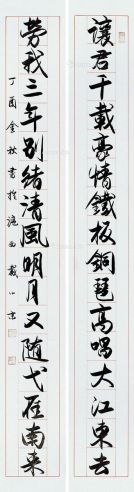 讓君千載豪情鐵板銅琶高唱大江東去
勞我三年別緒清風明月又隨弋雁南来
丁酉金秋書於滬西戴小京